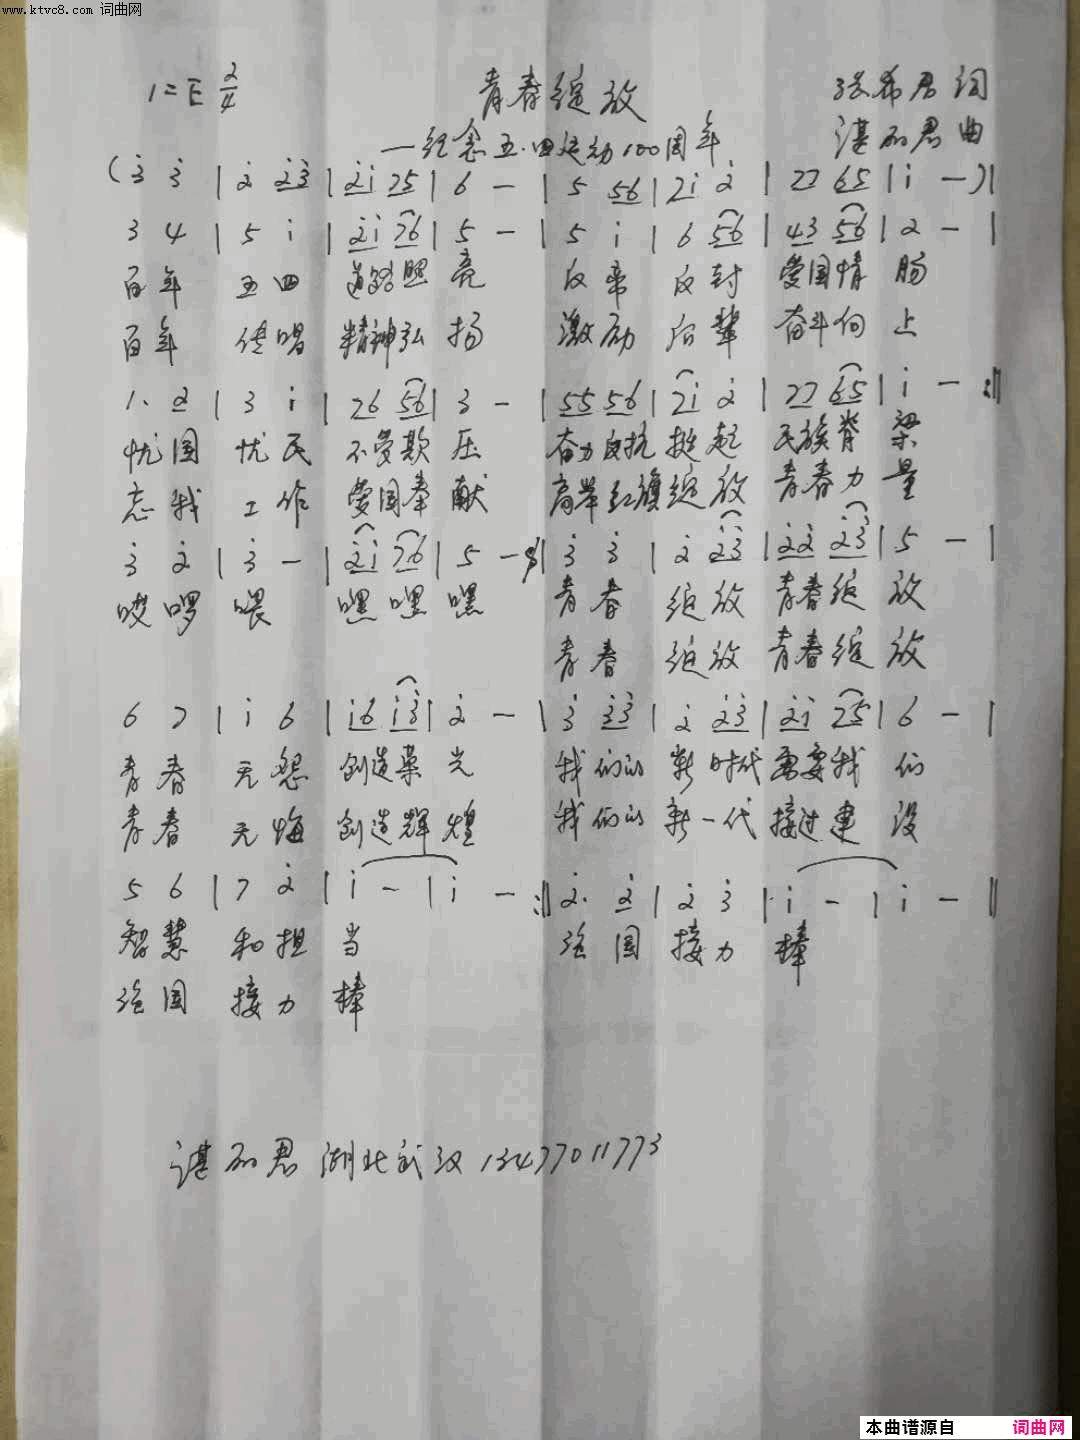 www.ktvc8.com 词曲网
1=E 2/4 青春绽放 张希君 词
—纪念五·四运动100周年 谌丽君 曲
(3̇ 3̇ | 2̇ 2̇3̇ | 2̇1̇ 75 | 6 - | 5 56 | 71̇ 2̇ | 77 65 | 1̇ - )|
3 4 | 5 1̇ | 2̇1̇ 76 | 5 - | 5 1̇ | 6 56 | 43 56 | 2 - |
百年 五四 道路照亮 反帝 反封 爱国情肠
百年 传唱 精神弘扬 激励 后辈 奋斗向上
1. 2 | 3 1̇ | 76 56 | 3 - | 55 56 | 71̇ 2̇ | 77 65 | 1̇ - :‖
忧国 忧民 不受欺压 奋力反抗 挺起 民族脊梁
忘我 工作 爱国奉献 高举红旗 绽放 青春力量
3̇ 2̇ | 3̇ - | 2̇1̇ 76 | 5 - :‖ 3̇ 3̇ | 2̇ 2̇3̇ | 2̇2̇ 2̇3̇ | 5 - |
哎啰 喂 嘿嘿嘿 青春 绽放 青春绽放
青春 绽放 青春绽放
6 7 | 1̇ 6 | 1̇6 1̇3̇ | 2̇ - | 3̇ 3̇3̇ | 2̇ 2̇3̇ | 2̇1̇ 75 | 6 - |
青春 无怨 创造荣光 我们的 新时代 需要我们
青春 无悔 创造辉煌 我们的 新一代 接过建设
5 6 | 7 2̇ | 1̇ - | 1̇ - :‖ 2̇. 2̇ | 2̇ 3̇ | 1̇ - | 1̇ - ‖
智慧 和担当 强国 接力 棒
强国 接力 棒
谌丽君 湖北武汉 13477011773
本曲谱源自 词曲网